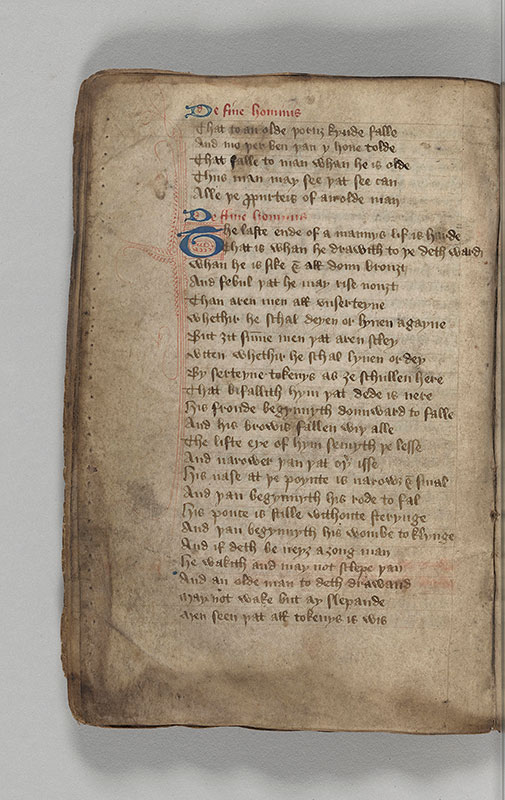 De fine hominis
That to an olde poynt kynde falle
And mo yer ben yan y haue tolde
That falle to man whan he is olde
Thus man may see yat see can
Alle ye propurteis of an olde man
De fine hominis
The laste ende of a mannys lif is harde
That is whan he drawith to ye deth ward
Whan he is sike & all doun brouȝt
And febul yat he may rise nouȝt
Than aren men all vnserteyne
Whethir he schal deyen or lyuen agayne
But ȝit summe men yat aren sley
Witen whethir he schal lyuen or dey
By serteyne tokenys as ȝe schullen here
That bifallith hym yat dede is nere
His fronde begynnyth dounward to falle
And his browis fallen wiy alle
The lifte eye of hym semyth ye lesse
And narower yan yat oyr isse
His nase at ye poynte is narowȝ & smal
And yan begynnyth his rode to fal
His ponte is stille withoute sterynge
And yan begynnyth his wombe to klynge
And if deth be neyȝ a ȝong man
He wakith and may not sclepe yan
And an olde man to deth drawand
May not wake but ay slepande
Men seen yat all tokenys is wis